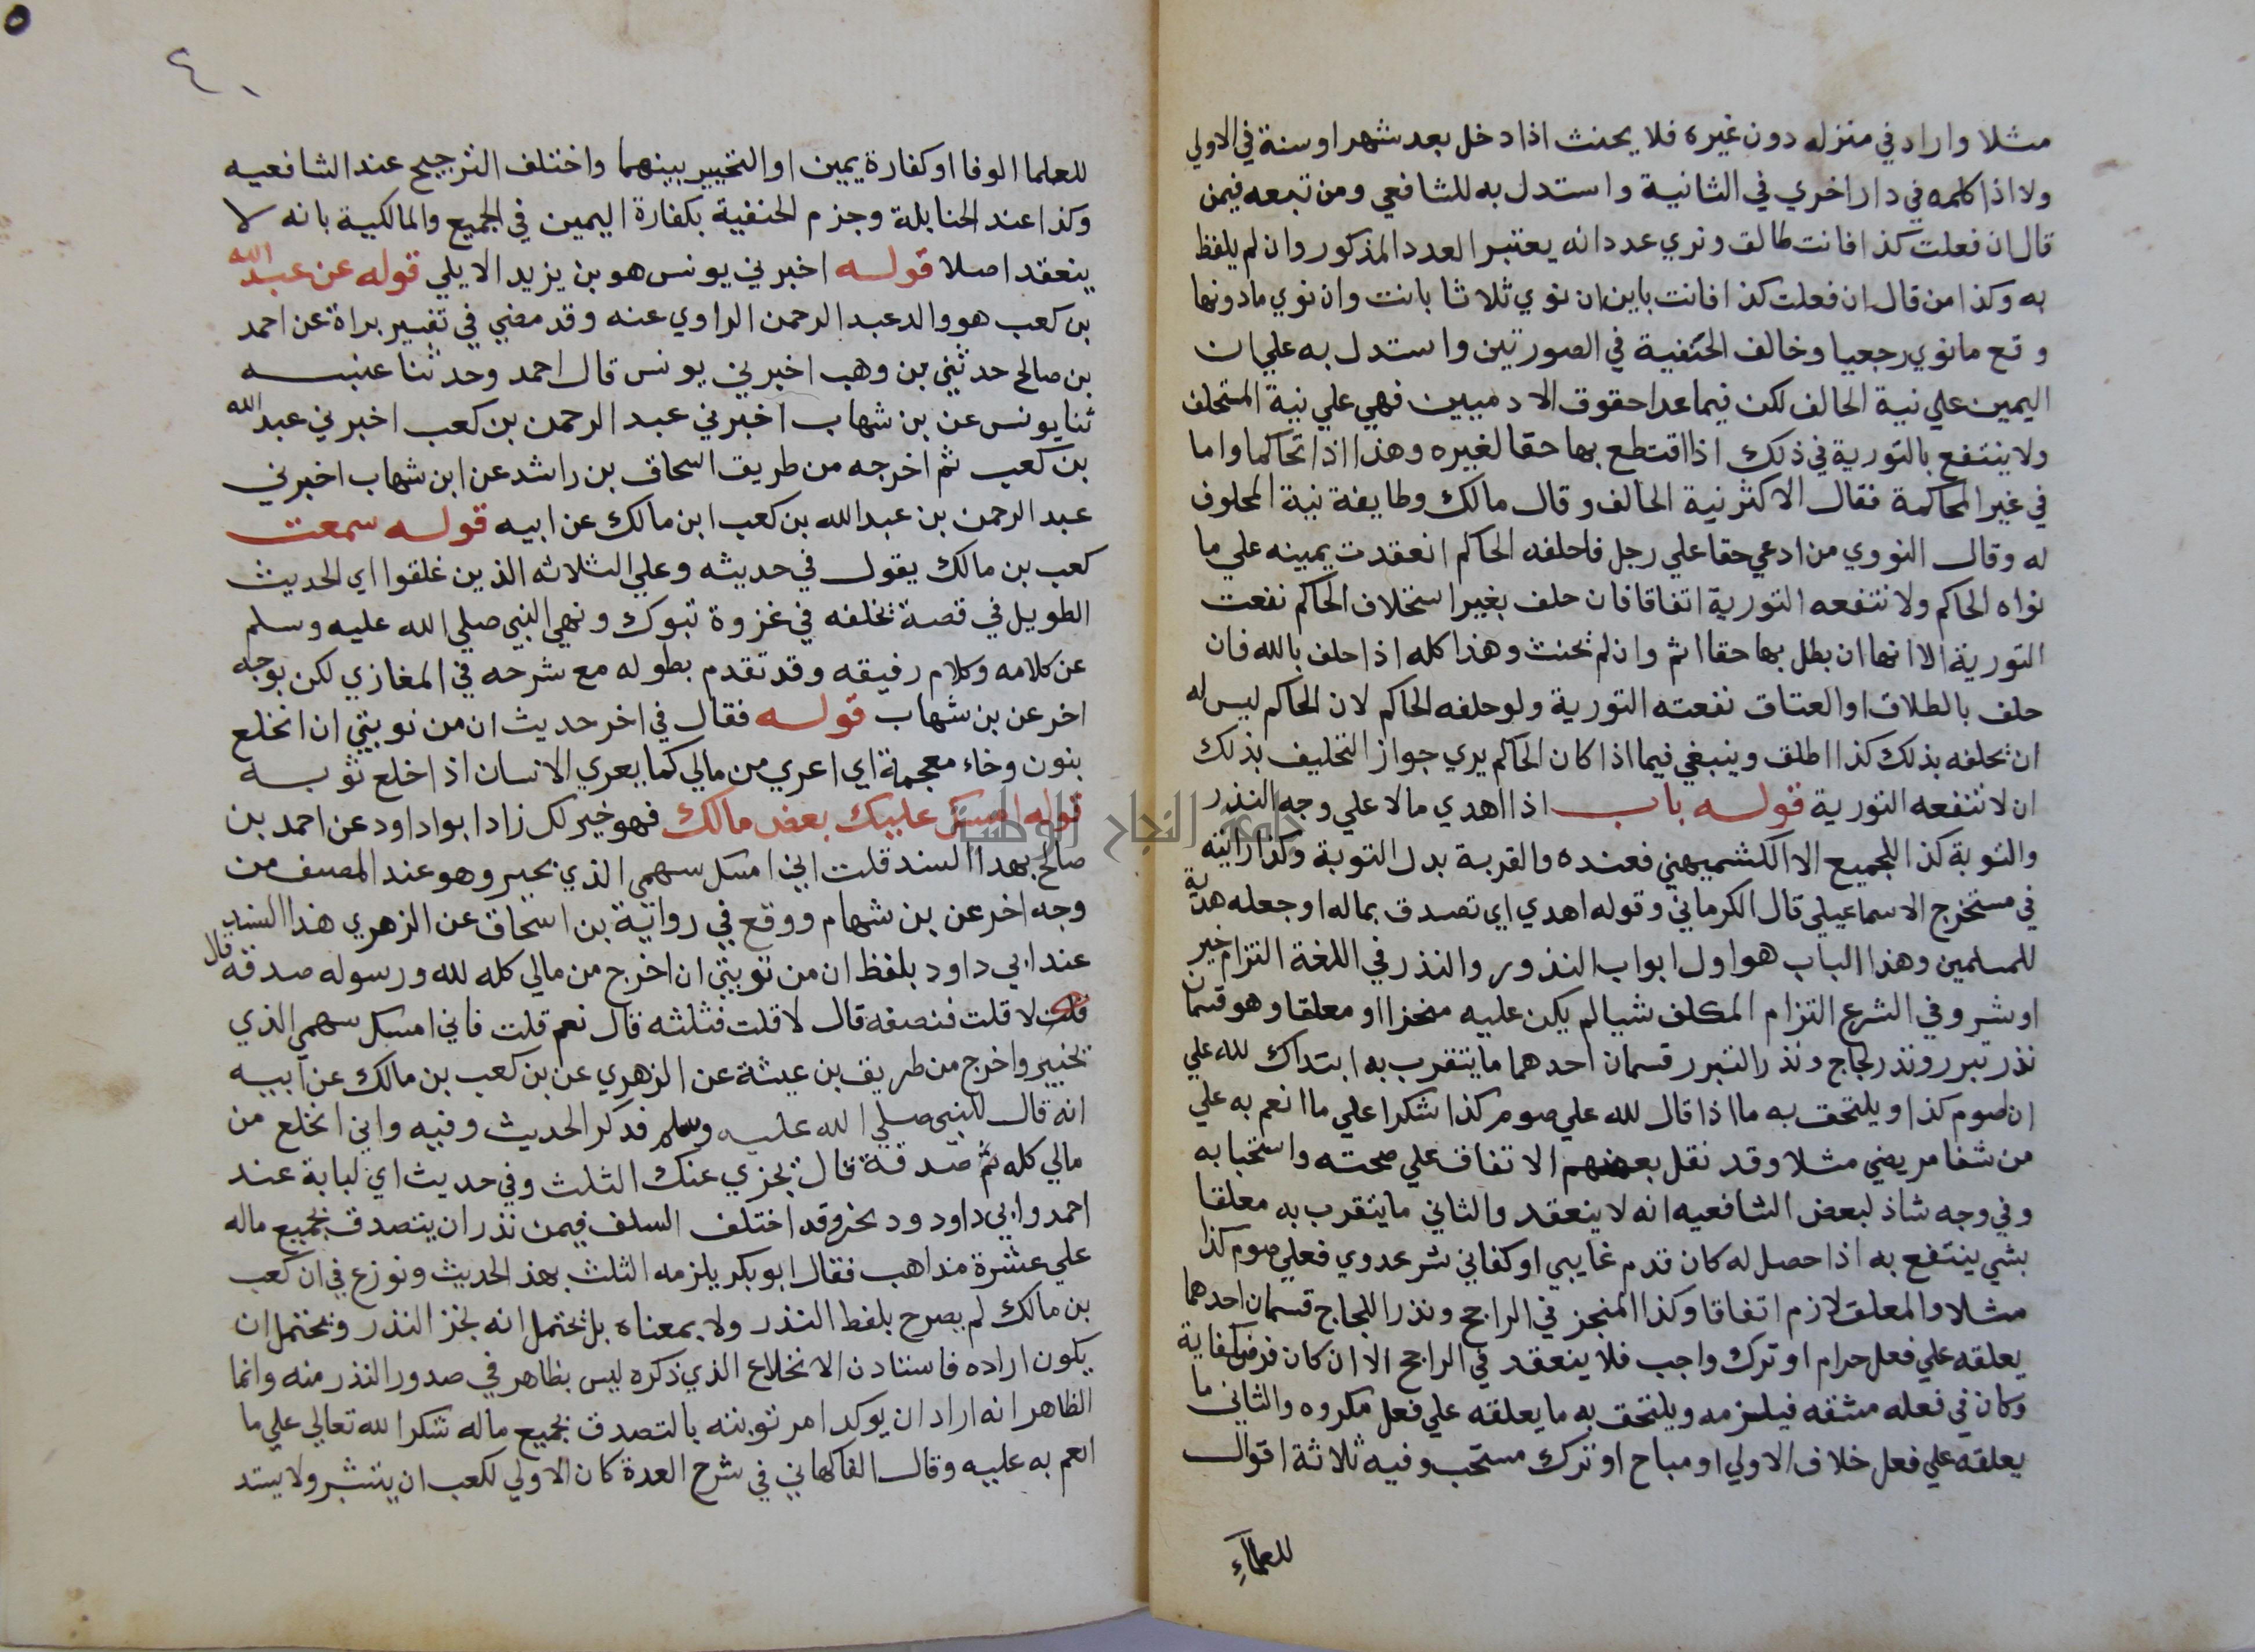 مثلا واراد في منزله دون غيره فلا يحنث اذا دخل بعد شهر او سنة في الاولي
ولا اذا كلمه في دار اخري في الثانية واستدل به للشافعي ومن تبعه فيمن
قال ان فعلت كذا فانت طالق ونوي عددا انه يعتبر العدد المذكور وان لم يلفظ
به وكذا من قال ان فعلت كذا فانت باين ان نوي ثلاثا بانت وان نوي ما دونها
وقع ما نوي رجعيا وخالف الحنفية في الصورتين واستدل به علي ان
اليمين علي نية الحالف لكن فيما عدا حقوق الادميين فهي علي نية المستحلف
ولا ينتفع بالتورية في ذلك اذا اقتطع بها حقا لغيره وهذا اذا تحاكما واما
في غير المحاكمة فقال الاكثر نية الحالف وقال مالك وطايفة نية المحلوف
له وقال النووي من ادعي حقا علي رجل فاحلفه الحاكم انعقدت يمينه علي ما
نواه الحاكم ولا تنفعه التورية اتفاقا فان حلف بغير استحلاف الحاكم نفعت
التورية الا انها ان بطل بها حقا اثم وان لم يحنث وهذا كله اذا حلف بالله فان
حلف بالطلاق او العتاق نفعته التورية ولو حلفه الحاكم لان الحاكم ليس له
ان يحلفه بذلك كذا اطلق وينبغي فيما اذا كان الحاكم يري جواز التحليف بذلك
ان لا تنفعه التورية قوله باب اذا اهدي مالا علي وجه النذر
والتوبة كذا للجميع الا الكشميهني فعنده والقربة بدل التوبة وكذا رايته
في مستخرج الاسماعيلي قال الكرماني وقوله اهدي اي تصدق بماله او جعله هدية
للمسلمين وهذا الباب هو اول ابواب النذور والنذر في اللغة التزام خير
او شر وفي الشرع التزام المكلف شيا لم يكن عليه منجزا او معلقا وهو قسمان
نذر تبرر ونذر لجاج ونذر التبرر قسمان احدهما ما يتقرب به ابتداك لله علي
ان اصوم كذا ويلتحق به ما اذا قال لله علي صوم كذا شكرا علي ما انعم به علي
من شفا مريضي مثلا وقد نقل بعضهم الاتفاق علي صحته واستحبابه
وفي وجه شاذ لبعض الشافعيه انه لا ينعقد والثاني ما يتقرب به معلقا
بشي ينتفع به اذا حصل له كان قدم غايبي او كفاني شر عدوي فعلي صوم كذا
مثلا والمعلق لازم اتفاقا وكذا المنجز في الراجح ونذر اللجاج قسمان احدهما
يعلقه علي فعل حرام او ترك واجب فلا ينعقد في الراجح الا ان كان فرض كفاية
وكان في فعله مشقه فيلزمه ويلتحق به ما يعلقه علي فعل مكروه والثاني ما
يعلقه علي فعل خلاف الاولي او مباح او ترك مستحب وفيه ثلاثة اقوال
للعلماء
٤٠
للعلما الوفا او كفارة يمين او التخيير بينهما واختلف الترجيح عند الشافعيه
وكذا عند الحنابلة وجزم الحنفية بكفارة اليمين في الجميع والمالكية بانه لا
ينعقد اصلا قوله اخبرني يونس هو بن يزيد الايلي قوله عن عبد الله
بن كعب هو والد عبد الرحمن الراوي عنه وقد مضي في تفسير براة عن احمد
بن صالح حدثني بن وهب اخبرني يونس قال احمد وحدثنا عنبسه
ثنا يونس عن بن شهاب اخبرني عبد الرحمن بن كعب اخبرني عبد الله
بن كعب ثم اخرجه من طريق اسحاق بن راشد عن ابن شهاب اخبرني
عبد الرحمن بن عبد الله بن كعب ابن مالك عن ابيه قوله سمعت
كعب بن مالك يقول في حديثه وعلي الثلاثه الذين خلفوا اي الحديث
الطويل في قصة تخلفه في غزوة تبوك ونهي النبي صلي الله عليه وسلم
عن كلامه وكلام رفيقه وقد تقدم بطوله مع شرحه في المغازي لكن بوجه
اخر عن بن شهاب قوله فقال في اخر حديث ان من توبتي ان انخلع
بنون وخاء معجمة اي اعري من مالي كما يعري الانسان اذا خلع ثوبه
قوله امسك عليك بعض مالك فهو خير لك زاد ابو داود عن احمد بن
صالح بهذا السند قلت اني امسك سهمي الذي بخيبر وهو عند المصنف من
وجه اخر عن بن شهام ووقع في رواية بن اسحاق عن الزهري هذا السند
عند ابي داود بلفظ ان من توبتي ان اخرج من مالي كله لله ورسوله صدقه قال
قلت لا قلت فنصفه قال لا قلت فثلثه قال نعم قلت فاني امسك سهمي الذي
بخيبر واخرج من طريق بن عيينة عن الزهري عن بن كعب بن مالك عن ابيه
انه قال للنبي صلي الله عليه وسلم فذكر الحديث وفيه واني انخلع من
مالي كله صدقة قال يجزي عنك الثلث وفي حديث ابي لبابة عند
احمد وابي داود ونحوه وقد اختلف السلف فيمن نذر ان يتصدق بجميع ماله
علي عشرة مذاهب فقال ابو بكر يلزمه الثلث بهذ الحديث ونوزع في ان كعب
بن مالك لم يصرح بلفظ النذر ولا بمعناه بل يحتمل انه نجز النذر ويحتمل ان
يكون اراده فاستاذن الانخلاع الذي ذكره ليس بظاهر في صدور النذر منه وانما
الظاهر انه اراد ان يوكد امر توبته بالتصدق بجميع ماله شكرا لله تعالي علي ما
انعم به عليه وقال الفاكهاني في شرح العدة كان الاولي لكعب ان يستشير ولا يستبد
جامعة النجاح الوطنية